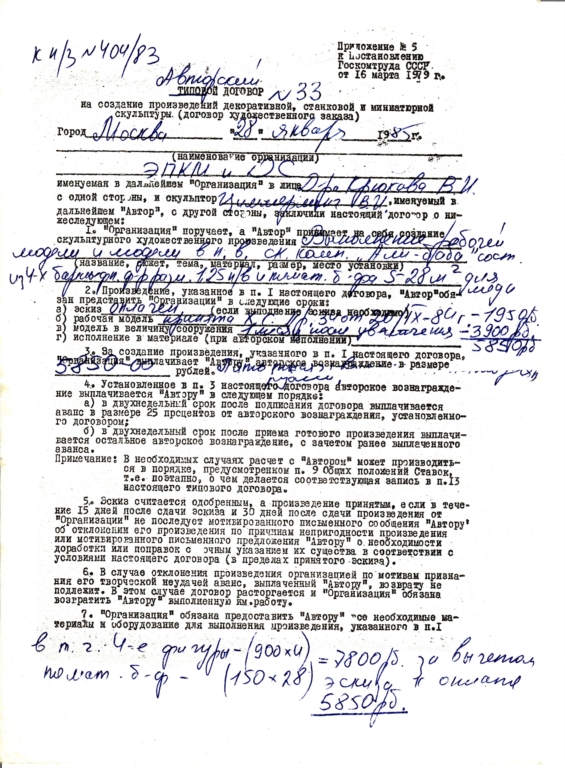 к н/з № 404/83
Приложение № 5
к Постановлению
Госкомтруда СССР
от 16 марта 1979 г.
Авторский
ТИПОВОЙ ДОГОВОР № 33
на создание произведений декоративной, станковой и миниатюрной
скульптуры (договор художественного заказа)
Город Москва "28" января 1985 г.
(наименование организации)
ЭПКМ и ДС
именуемая в дальнейшем "Организация" в лице Д-ра Крюкова В.И.
с одной стороны, и скульптор В.И. именуемый в
дальнейшем "Автор", с другой стороны, заключили настоящий договор о ни-
жеследующем:
1. "Организация" поручает, а "Автор" принимает на себя создание
скульптурного художественного произведения Выполнение рабочей
модели и модели в н.в. ск. комп. "Али-баба" сост.
(название, сюжет, тема, материал, размер, место установки)
из 4х фигур 1,25 н/в и пласт. б-фа S-28 м² для
2. Произведение, указанное в п. I настоящего договора, "Автор" обя-
зан представить "Организации" в следующие сроки:
а) эскиз оплачен (если выполнение эскиза необходимо)
б) рабочая модель принята Х.С. пр. 30 от 20/IX-84г - 1950 рб.
в) модель в величину сооружения - 3900 рб.
г) исполнение в материале (при авторском исполнении) 5850 рб
3. За создание произведения, указанного в п. I настоящего договора,
"Организация" выплачивает "Автору" авторское вознаграждение в размере
5850-00 рублей.
4. Установленное в п. 3 настоящего договора авторское вознагражде-
ние выплачивается "Автору" в следующем порядке:
а) в двухнедельный срок после подписания договора выплачивается
аванс в размере 25 процентов от авторского вознаграждения, установленно-
го договором;
б) в двухнедельный срок после приема готового произведения выплачи-
вается остальное авторское вознаграждение, с зачетом ранее выплаченного
аванса.
Примечание: В необходимых случаях расчет с "Автором" может производить-
ся в порядке, предусмотренном п. 9 Общих положений Ставок,
т.е. поэтапно, о чем делается соответствующая запись в п.13
настоящего типового договора.
5. Эскиз считается одобренным, а произведение принятым, если в тече-
ние 15 дней после сдачи эскиза и 30 дней после сдачи произведения от
"Организации" не последует мотивированного письменного сообщения "Автору"
об отклонении его произведения по причинам непригодности произведения
или мотивированного письменного предложения "Автору" о необходимости
доработки или поправок с очным указанием их существа в соответствии с
условиями настоящего договора (в пределах принятого эскиза).
6. В случае отклонения произведения организацией по мотивам призна-
ния его творческой неудачей аванс, выплаченный "Автору", возврату не
подлежит. В этом случае договор расторгается и "Организация" обязана
возвратить "Автору" выполненную им работу.
7. "Организация" обязана предоставить "Автору" все необходимые ма-
териалы и оборудование для выполнения произведения, указанного в п.I
в т.ч. 4-е фигуры - (900 х 4) = 7800 рб. за вычетом
пласт. б-ф - (150 х 28) эскиза к оплате
5850 рб.